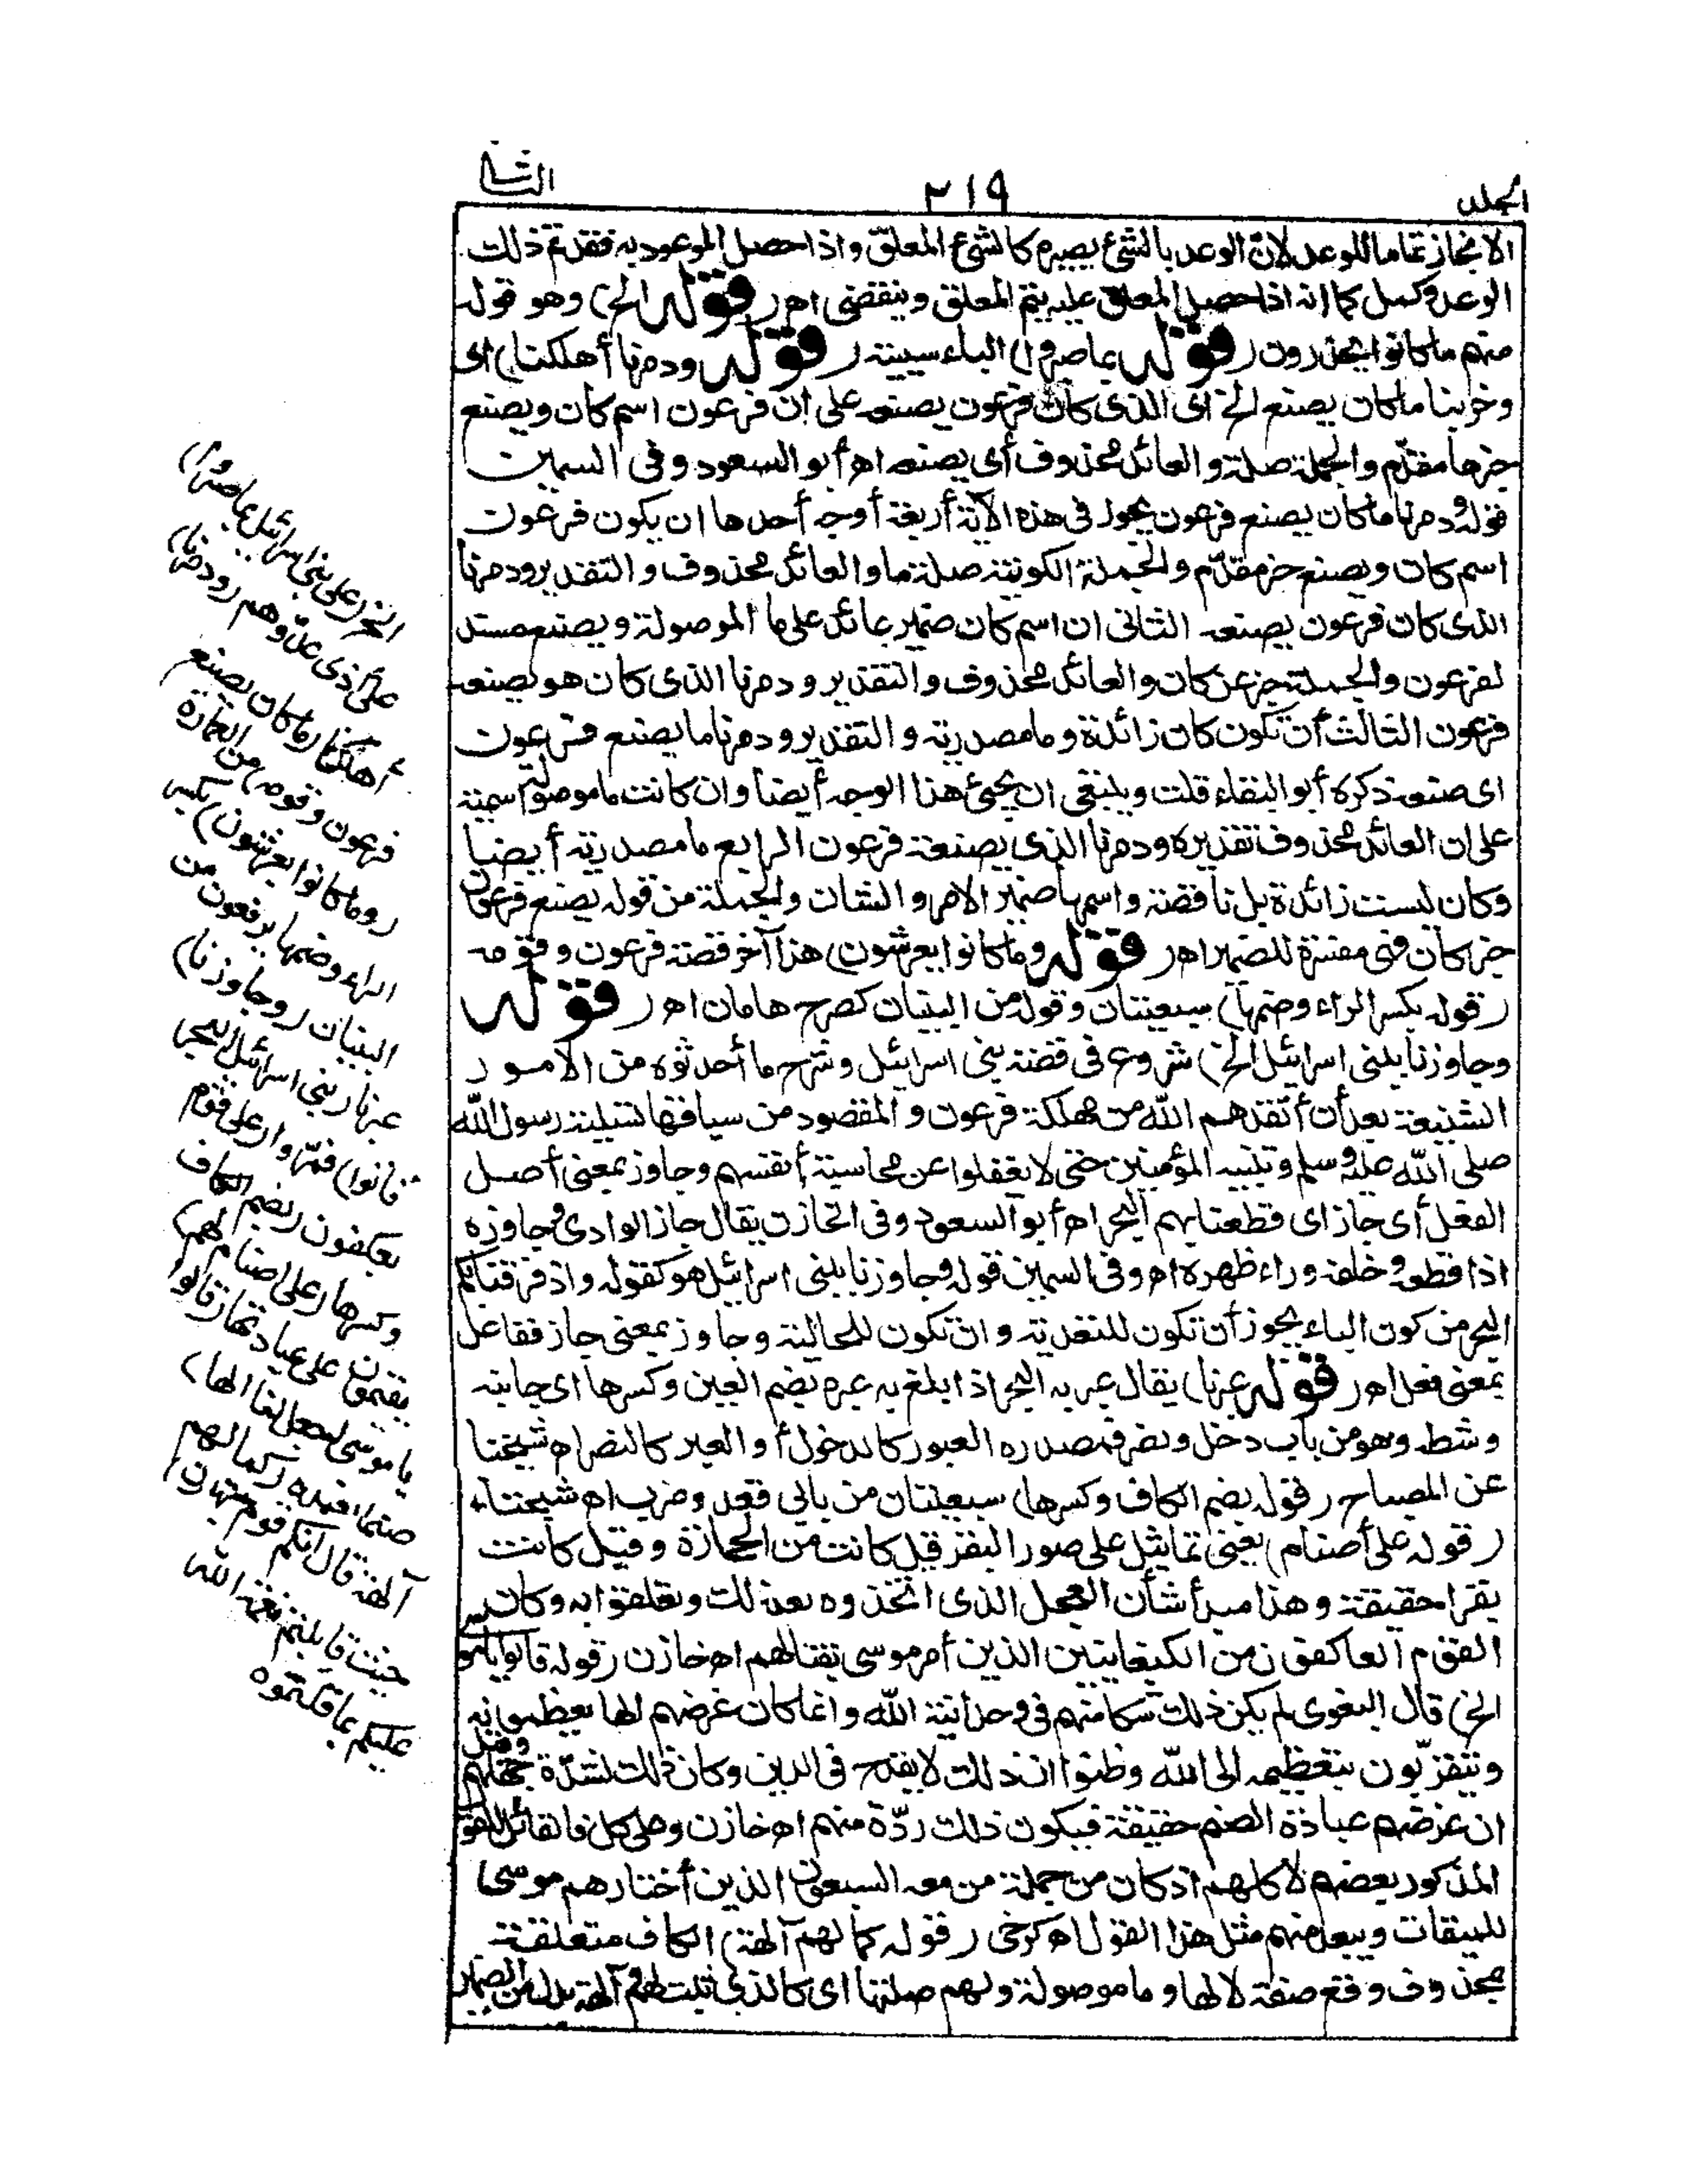 المجلد
٢١٩
الثانى
الانجاز تماما للوعد لان الوعد بالشئ يصيره كالشئ المعلق واذا حصل الموعود به فقد تم ذلك
الوعد وكمل كما انه اذا حصل المعلق عليه يتم المعلق وينقضى اه (قوله الخ) وهو قوله
منهم ما كانوا يحذرون (قوله بما صبروا) الباء سببية (قوله ودمرنا أهلكنا) اى
وخربنا ما كان يصنع الخ اى الذى كان فرعون يصنعه على ان فرعون اسم كان ويصنع
خبرها مقدّم والجملة صلة والعائد محذوف أى يصنعه اه أبو السعود وفى السمين
قوله ودمرنا ما كان يصنع فرعون يجوز فى هذه الآية أربعة أوجه أحدها ان يكون فرعون
اسم كان ويصنع خبر مقدّم والجملة الكونية صلة ما والعائد محذوف والتقدير ودمرنا
الذى كان فرعون يصنعه الثانى ان اسم كان ضمير عائد على ما الموصولة ويصنع مسند
لفرعون والجملة خبر عن كان والعائد محذوف والتقدير ودمرنا الذى كان هو يصنعه
فرعون الثالث أن تكون كان زائدة وما مصدرية والتقدير ودمرنا ما يصنع فرعون
اى صنعه ذكره أبو البقاء قلت وينبغى ان يجئ هذا الوجه أيضا وان كانت ما موصولة اسمية
على ان العائد محذوف تقديره ودمرنا الذى يصنعه فرعون الرابع ما مصدرية أيضا
وكان ليست زائدة بل ناقصة واسمها ضمير الامر والشان والجملة من قوله يصنع فرعون
خبر كان فهى مفسرة للضمير اه (قوله وما كانوا يعرشون) هذا آخر قصة فرعون وقومه
(قوله بكسر الراء وضمها) سبعيتان وقوله من البنيان كصرح هامان اه (قوله
وجاوزنا ببنى اسرائيل الخ) شروع فى قصة بنى اسرائيل وشرح ما أحدثوه من الامور
الشنيعة بعد أن أنقذهم الله من مهلكة فرعون والمقصود من سياقها تسلية رسول الله
صلى الله عليه وسلم وتنبيه المؤمنين حتى لا يغفلوا عن محاسبة أنفسهم وجاوز بمعنى أصل
الفعل أى جاز اى قطعنا بهم البحر اه أبو السعود وفى الخازن يقال جاز الوادى وجاوزه
اذا قطعه وخلفه وراء ظهره اه وفى السمين قوله وجاوزنا ببنى اسرائيل هو كقوله واذ فرقنا بكم
البحر من كون الباء يجوز أن تكون للتعدية وان تكون للحالية وجاوز بمعنى جاز ففاعل
بمعنى فعل اه (قوله عبرنا) يقال عبر به البحر اذا بلغ به عبره بضم العين وكسرها اى جانبه
وشطه وهو من باب دخل ونصر فمصدره العبور كالدخول أو العبر كالنصر اه شيخنا
عن المصباح (قوله بضم الكاف وكسرها) سبعيتان من بابى قعد وضرب اه شيخنا
(قوله على أصنام) يعنى تماثيل على صور البقر قيل كانت من الحجارة وقيل كانت
بقرا حقيقة وهذا مبدأ شأن العجل الذى اتخذوه بعد ذلك وتعلقوا به وكان
القوم العاكفون من الكنعانيين الذين أمر موسى بقتالهم اه خازن (قوله قالوا يا موسى
الخ) قال البغوى لم يكن ذلك شكا منهم فى وحدانية الله وانما كان غرضهم الها يعظمونه
ويتقربون بتعظيمه الى الله وظنوا ان ذلك لا يقدح فى الدين وكان ذلك لشدّة جهلهم وقيل
ان غرضهم عبادة الصنم حقيقة فيكون ذلك ردّة منهم اه خازن وعلى كل فالقائل للقول
المذكور بعضهم لا كلهم اذ كان من جملة من معه السبعون الذين أختارهم موسى
للميقات ويبعد منهم مثل هذا القول اه كرخى (قوله كما لهم آلهة) الكاف متعلقة
بمحذوف وقع صفة لالها وما موصولة ولهم صلتها اى كالذى ثبت لهم وآلهة بدل من الضمير
الخ (على بنى اسرائيل بما صبروا)
على أذى عدوهم (ودمرنا)
أهلكنا (ما كان يصنع
فرعون وقومه) من العمارة
(وما كانوا يعرشون) بكسر
الراء وضمها يرفعون من
البنيان (وجاوزنا)
عبرنا (ببنى اسرائيل البحر
فأتوا) فمروا (على قوم
يعكفون) بضم الكاف
وكسرها (على اصنام لهم)
يقيمون على عبادتها (قالوا
يا موسى اجعل لنا الها)
صنما نعبده (كما لهم
آلهة قال انكم قوم تجهلون)
حيث قابلتم نعمة الله
عليكم بما قلتموه